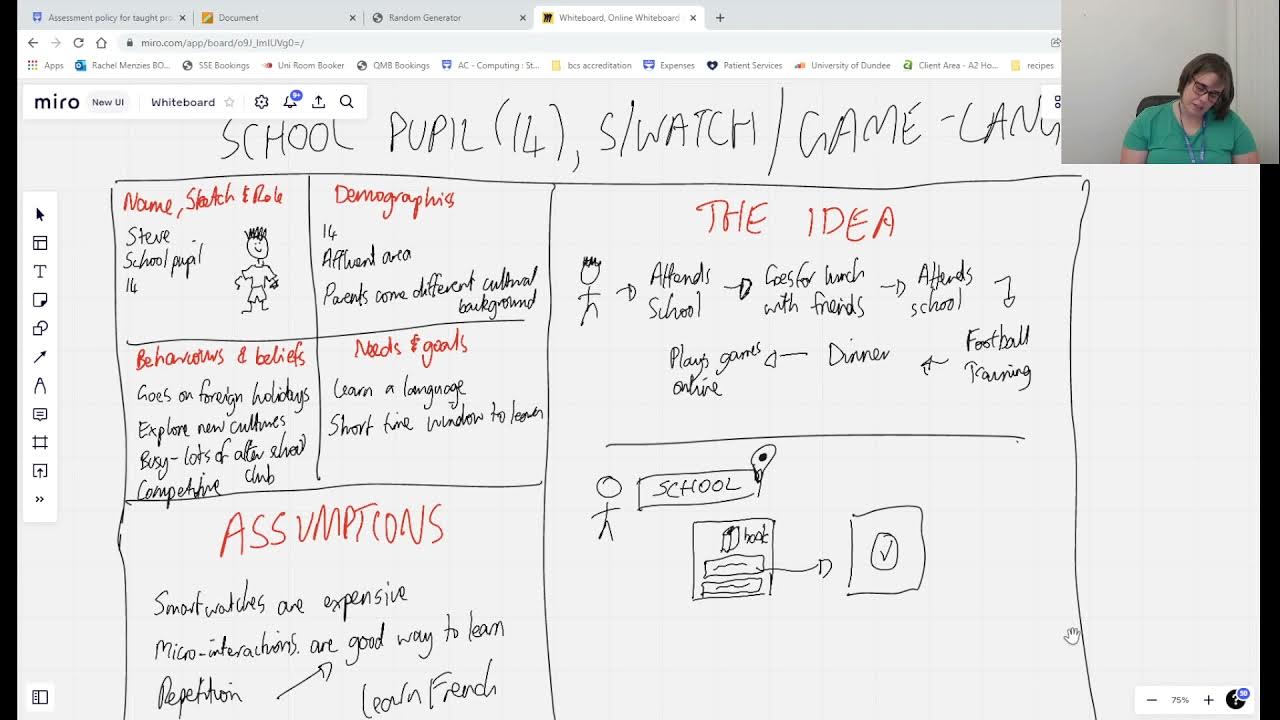 Assessment policy for taught pro
Document
Random Generator
Whiteboard, Online Whiteboard
miro.com/app/board/o9J_lmIUVg0=/
Apps
Rachel Menzies BO...
SSE Bookings
Uni Room Booker
QMB Bookings
AC - Computing : St...
bcs accreditation
Expenses
Patient Services
University of Dundee
Client Area - A2 Ho...
recipes
miro
New UI
Whiteboard
9+
SCHOOL PUPIL (14), S/WATCH / GAME - LANG
Name, Sketch & Role
Steve
School pupil
14
Demographics
14
Affluent area
Parents come different cultural
background
Behaviours & beliefs
Goes on foreign holidays
Explore new cultures
Busy - lots of after school
club
Competitive
Needs & goals
Learn a language
Short time window to learn
ASSUMPTIONS
Smartwatches are expensive
Micro-interactions are good way to learn
Repetition
Learn French
THE IDEA
Attends
school
Goes for lunch
with friends
Attends
school
Football
Training
Dinner
Plays games
online
SCHOOL
book
75%
30